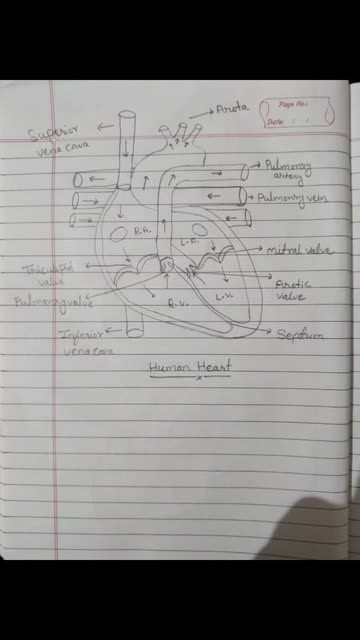 Arota
Page No.:
Date: : :
Superior
vena cava
Pulmonary
artery
Pulmonary vein
R.A.
L.A.
mitral valve
Tricuspid
valve
Arotic
valve
Pulmonary valve
R.V.
L.V.
Inferior
vena cava
Septum
Human Heart